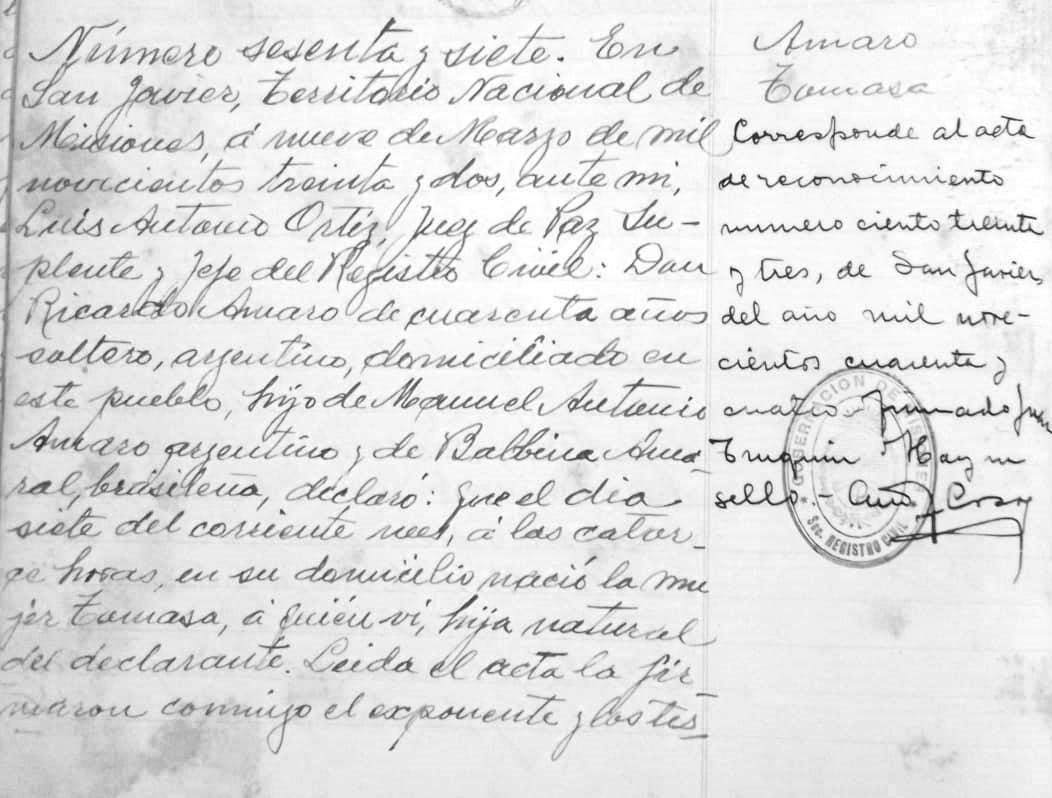 Número sesenta y siete. En
San Javier, Territorio Nacional de
Misiones, á nueve de Marzo de mil
novecientos treinta y dos, ante mi,
Luis Antonio Ortiz, Juez de Paz Su-
plente y Jefe del Registro Civil: Don
Ricardo Amaro de cuarenta años
soltero, argentino, domiciliado en
este pueblo, hijo de Manuel Antonio
Amaro argentino y de Balbina Ama-
ral, brasileña, declaró: que el dia
siete del corriente mes, á las cator-
ce horas, en su domicilio nació la mu
jer Tomasa, á quién vi, hija natural
del declarante. Leida el acta la fir-
maron conmigo el exponente y los tes-
Amaro
Tomasa
Corresponde al acta
de reconocimiento
numero ciento treinta
y tres, de San Javier,
del año mil nove-
cientos cuarenta y
cuatro - firmado Juan
Hay un
sello -
GOBERNACION DE MISIONES
SEC. REGISTRO CIVIL